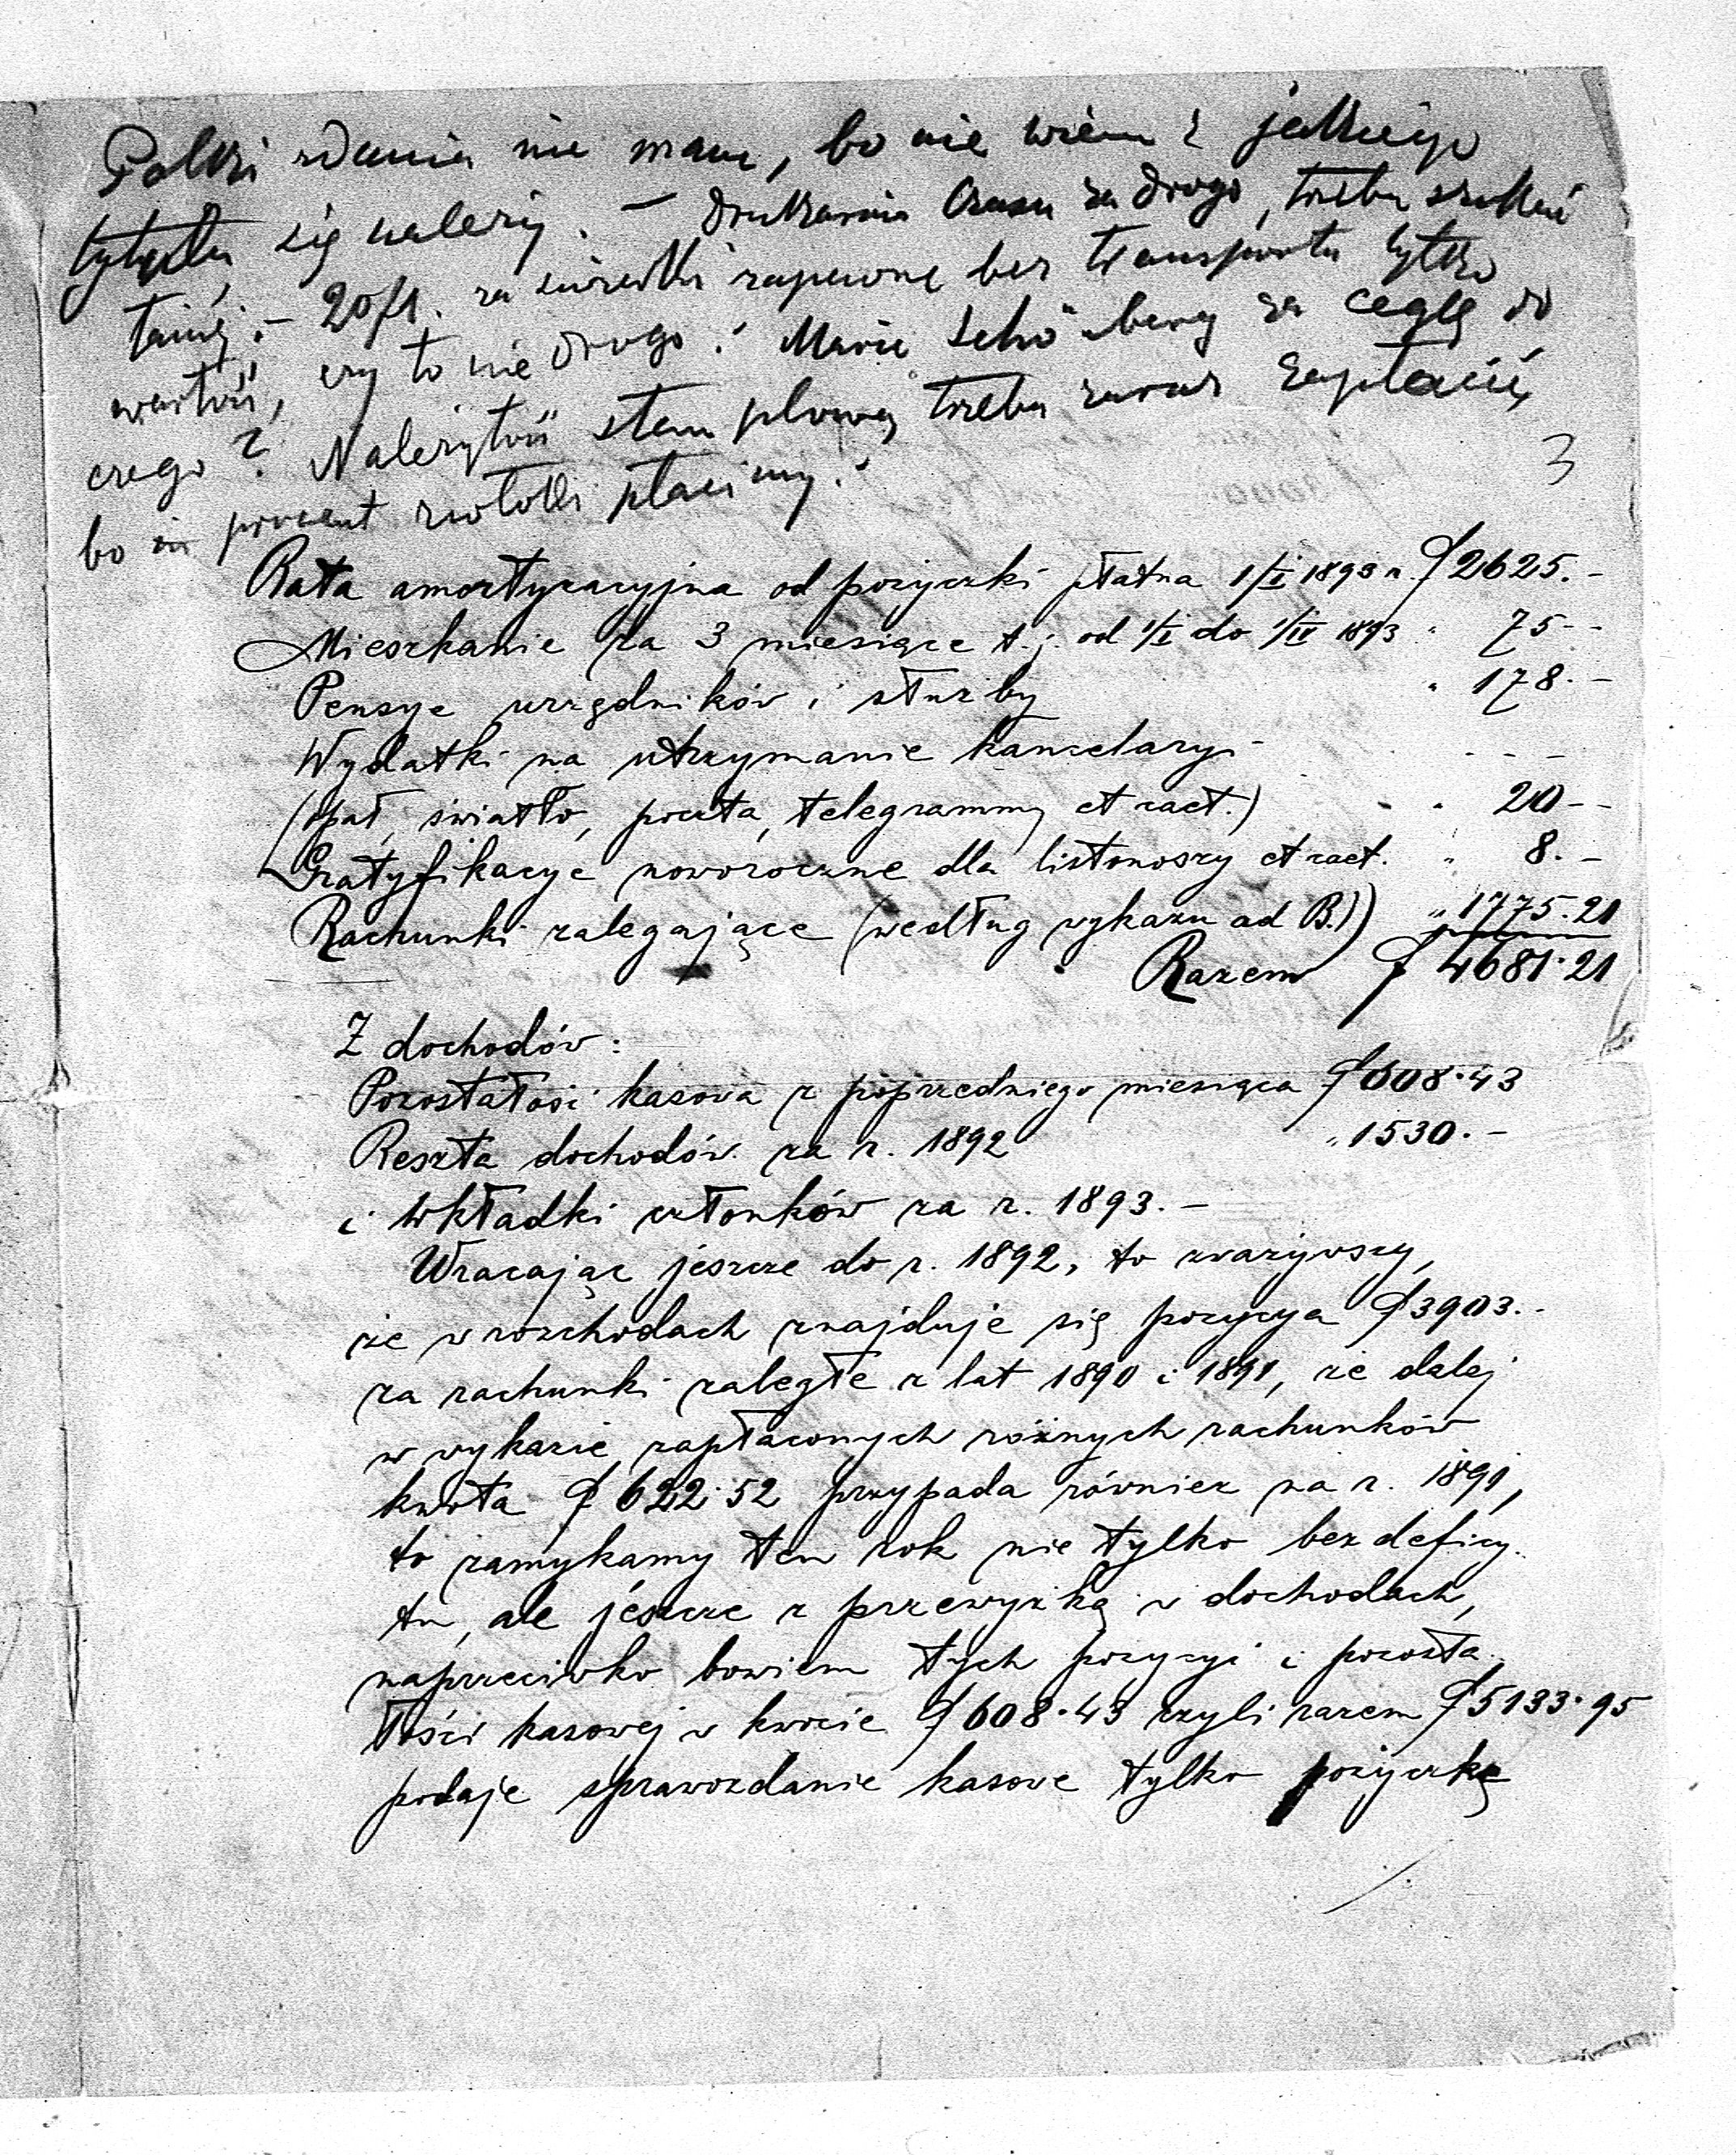 zdania nie mam, bo nie wiem z jakiego
tytułu się należy. — Drukarnia Czasu za drogo, trzeba szukać
taniej. — 20 fl. za zapewne bez transportu tylko
wartość, czy to nie drogo? Marie Schönberg za cegłę do
czego? Należytość stemplową trzeba zaraz zapłacić,
bo procent zwłoki płacimy.
3
Rata amortyzacyjna od pożyczki płatna 1/I 1893 r. f 2625.–
Mieszkanie za 3 miesiące t.j. od 1/I do 1/IV 1893 " 75.–
Pensye urzędników i służby " 178.–
Wydatki na utrzymanie kancelaryi – – –
(opał, światło, poczta, telegrammy et caet.) " 20.–
Gratyfikacye noworoczne dla listonoszy et caet. " 8.–
Rachunki zalegające (według wykazu ad B.)) " 1775.21
Razem f 4681.21
Z dochodów:
Pozostałość kasowa z poprzedniego miesiąca f 608.43
Reszta dochodów za r. 1892 " 1530.–
i wkładki członków za r. 1893.–
Wracając jeszcze do r. 1892, to zważywszy,
że w rozchodach znajduje się pozycya f 3903.–
za rachunki zaległe z lat 1890 i 1891, że dalej
w wykazie zapłaconych różnych rachunków
kwota f 622.52 przypada również na r. 1891,
to zamykamy ten rok nie tylko bez deficy-
tu, ale jeszcze z przewyżką w dochodach,
naprzeciwko bowiem tych pozycyi i pozosta-
łości kasowej w kwocie f 608.43 czyli razem f 5133.95
podaje sprawozdanie kasowe tylko pożyczkę